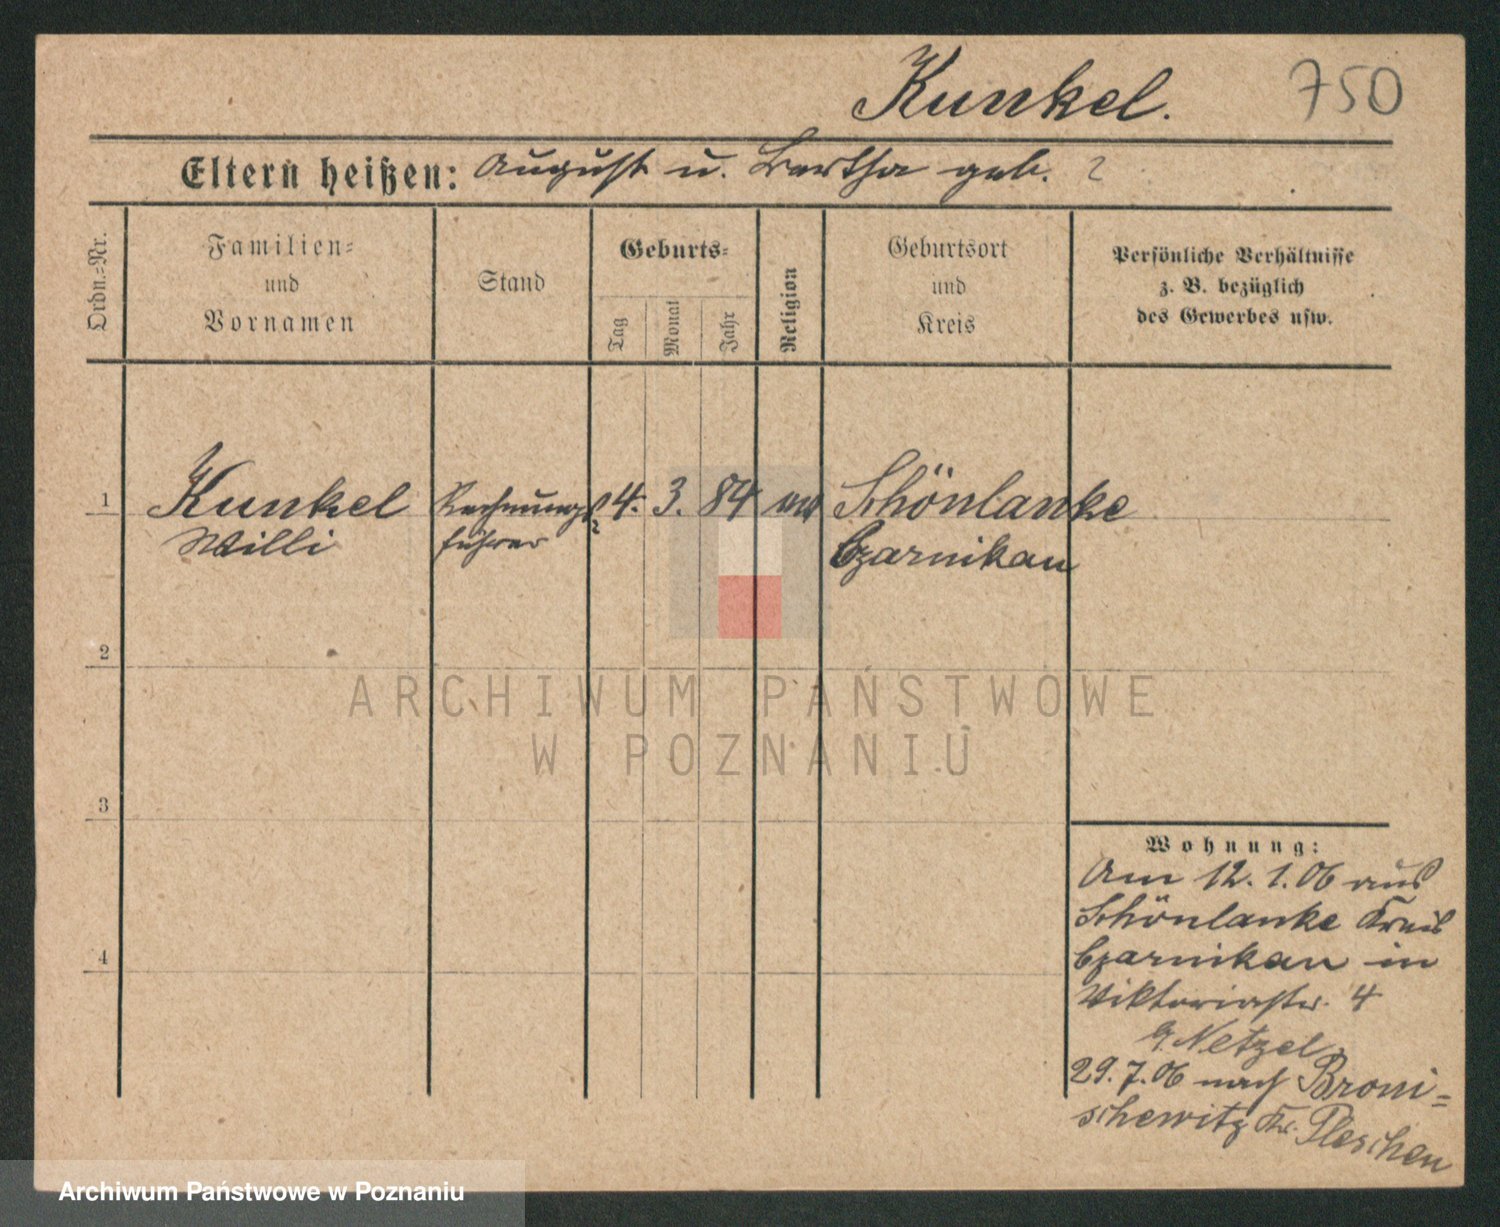 Kunkel.
750
Eltern heißen: August u. Bertha geb. ?
Ordn.=Nr.
Familien=
und
Vornamen
Stand
Geburts=
Tag
Monat
Jahr
Religion
Geburtsort
und
Kreis
Persönliche Verhältnisse
z. B. bezüglich
des Gewerbes usw.
1
Kunkel
Willi
Rechnungs
führer
4. 3. 84
Schönlanke
Czarnikau
2
ARCHIWUM PAŃSTWOWE
W POZNANIU
3
4
Wohnung:
Am 12.1.06 aus
Schönlanke Kreis
Czarnikau in
Viktoriastr. 4
Netzel
29.7.06 nach Broni=
schewitz Kr. Pleschen
Archiwum Państwowe w Poznaniu